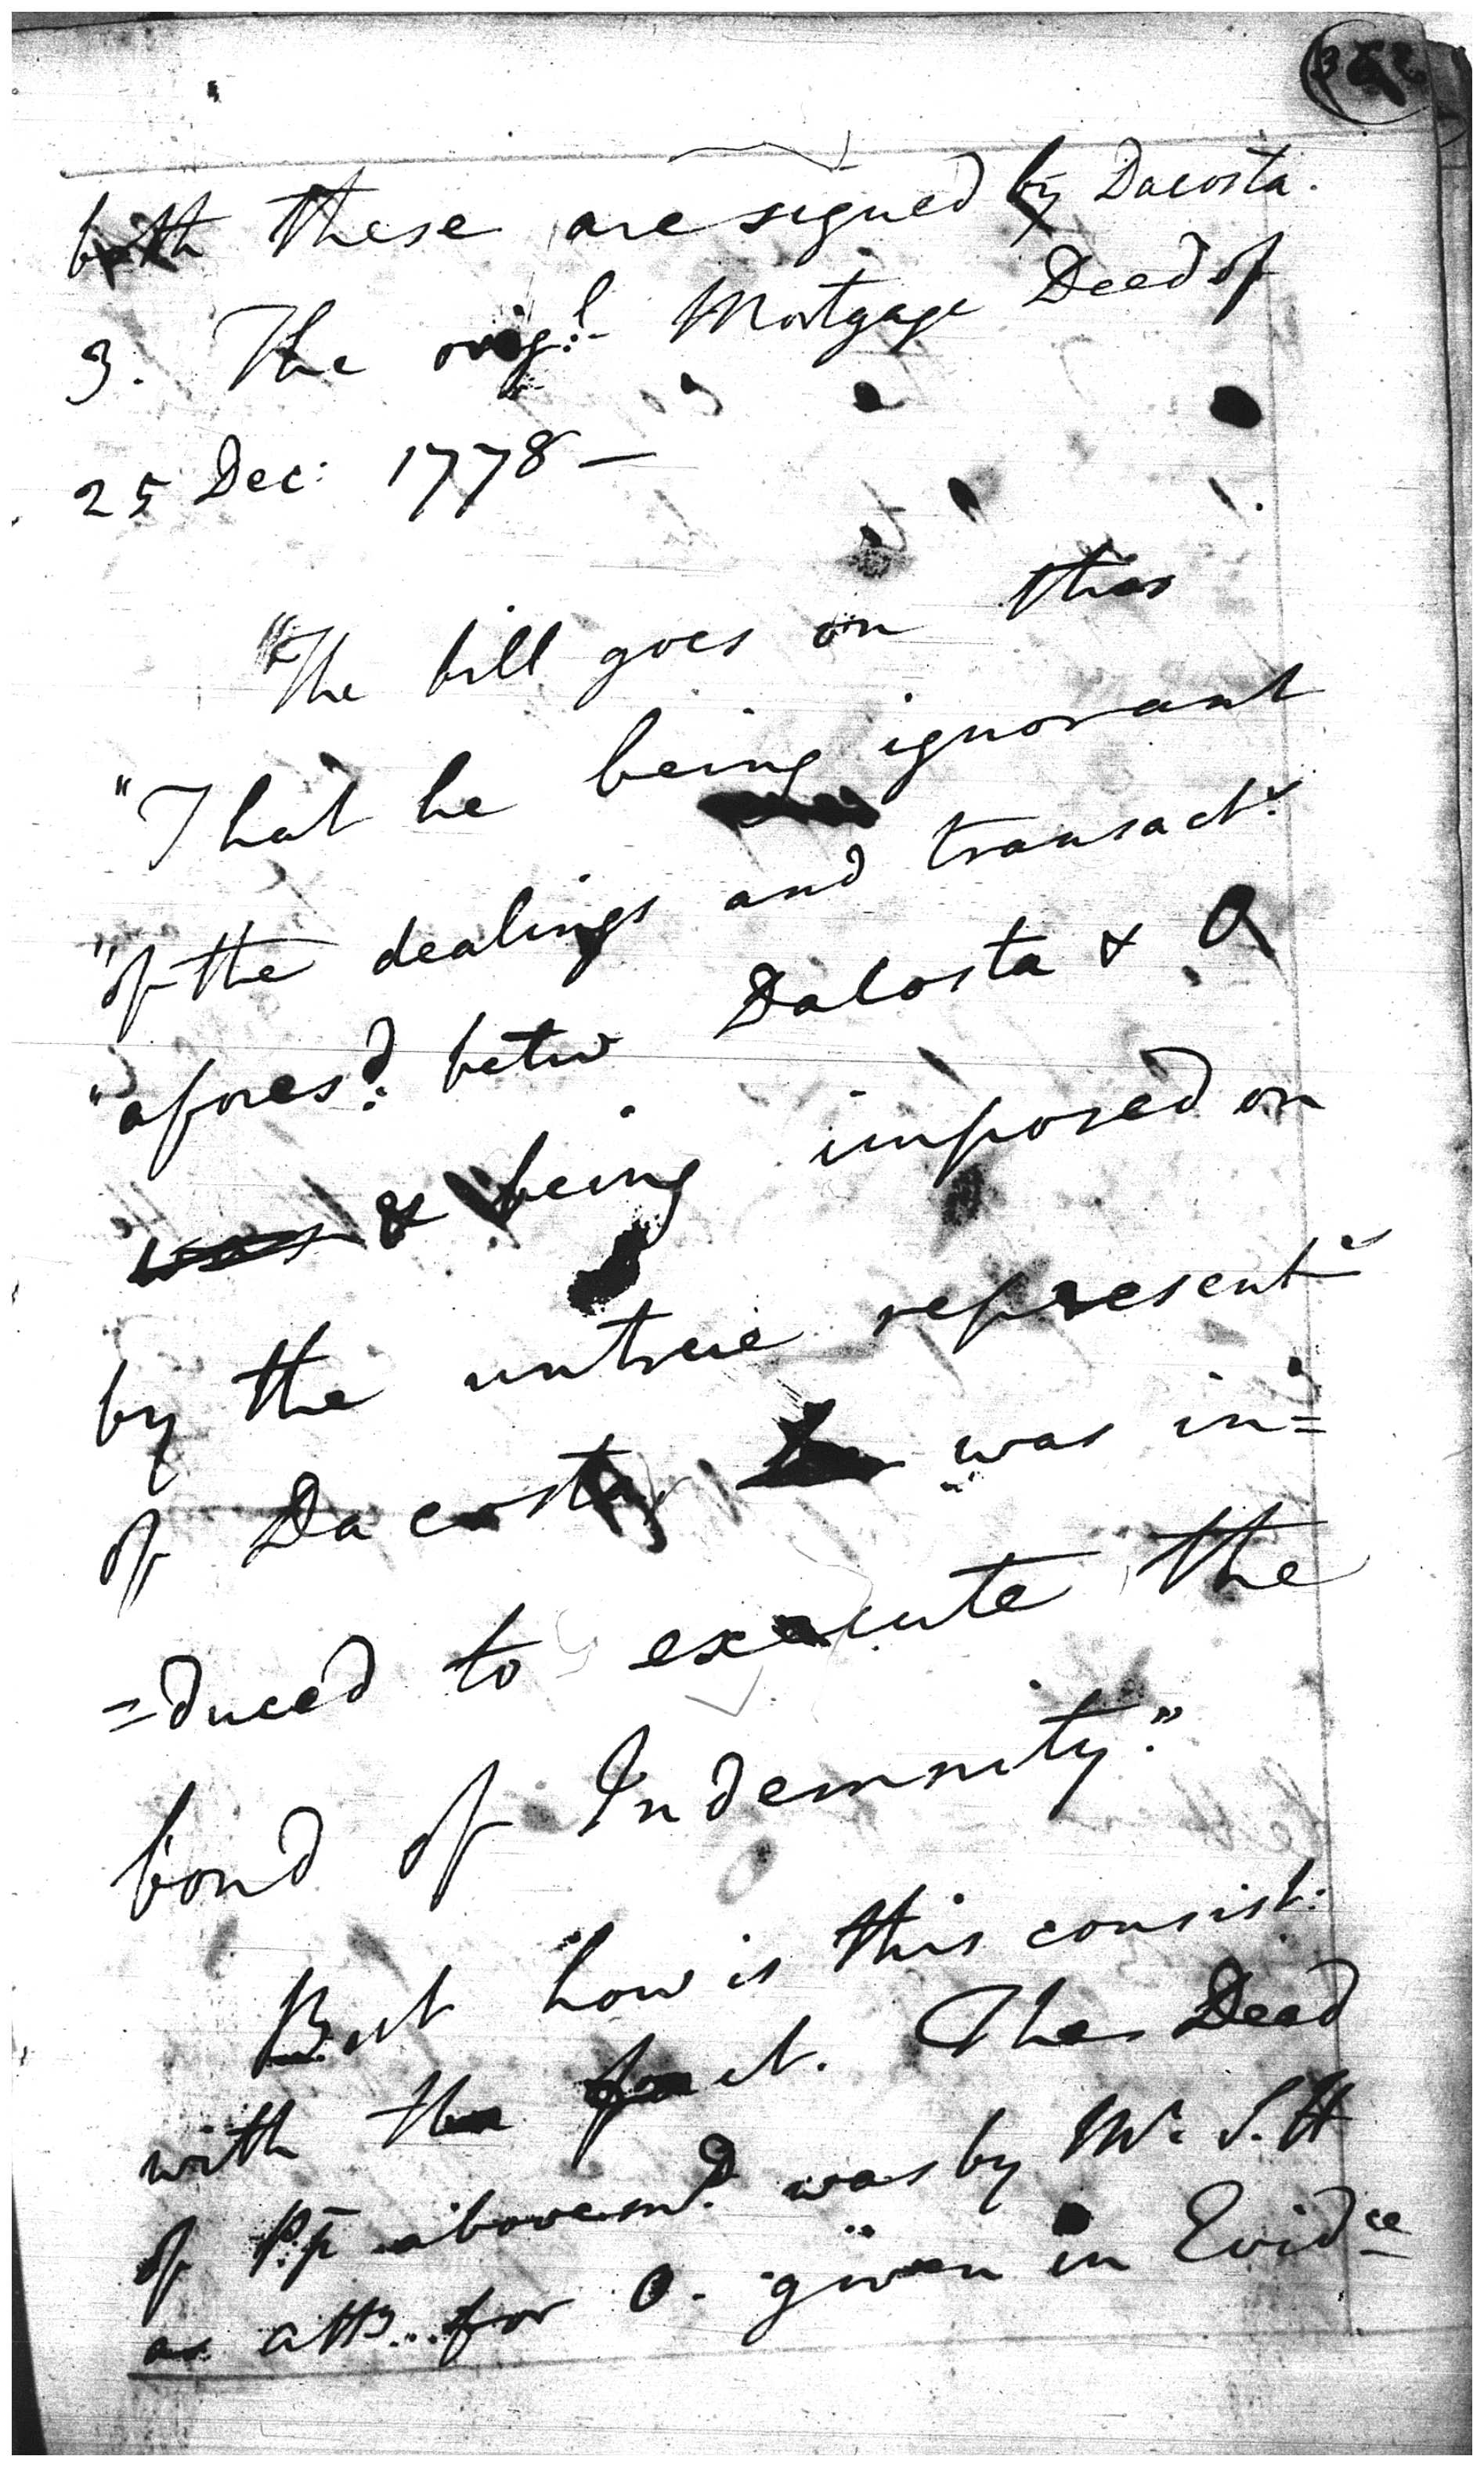 both these are signed by Dacosta.
3. The orig:l Mortgage Deed of
25 Dec: 1778 —
"The bill goes on this
"That he being ignorant
"of the dealings and transact:s
"afores:d betw Dacosta & O
was & being imposed on
by the untrue represent:s
of Da costa was in=
=duced to execute the
bond of Indemnity."
But how is this consist:
with the fact. The Deed
of above m:d was by Mr. S. H
as atty for O. given in Evid:ce